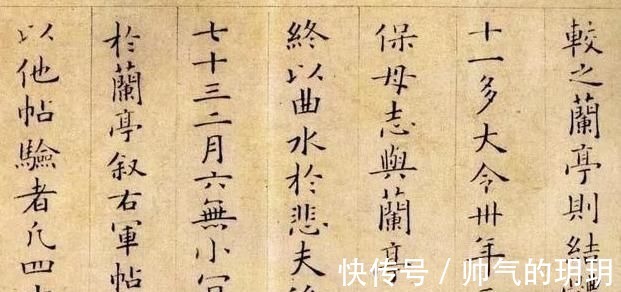 較之蘭亭則結
十一多大令卅年
保母志與蘭亭
終以曲水於悲夫
七十三二月六無小
於蘭亭叙右軍帖
以他帖驗者凡四
快传号 / 帅气的玥玥